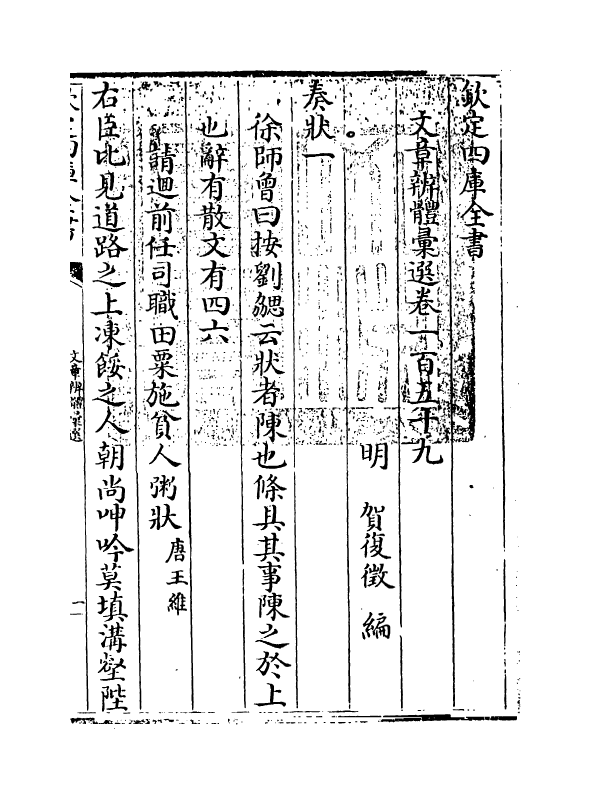 欽定四庫全書
文章辨體彚選卷一百五十九
明　賀復徵　編
奏狀一
徐師曾曰按劉勰云狀者陳也條具其事陳之於上
也辭有散文有四六
請迴前任司職田粟施貧人粥狀　唐王維
右臣比見道路之上凍餒之人朝尚呻吟莫填溝壑陛
欽定四庫全書
文章辨體彚選
一